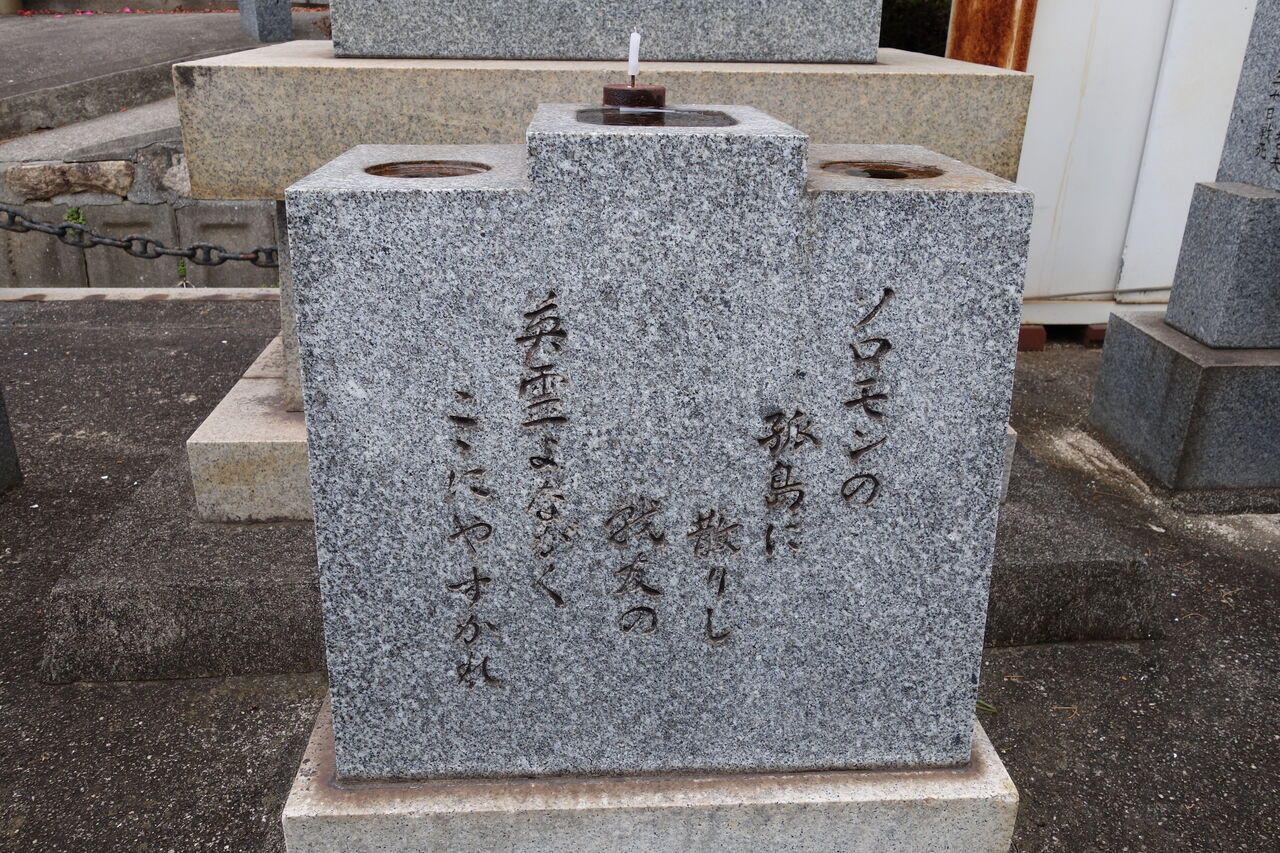 ノロモンの
孤島に
散りし
戦友の
英霊よながく
こゝにやすかれ